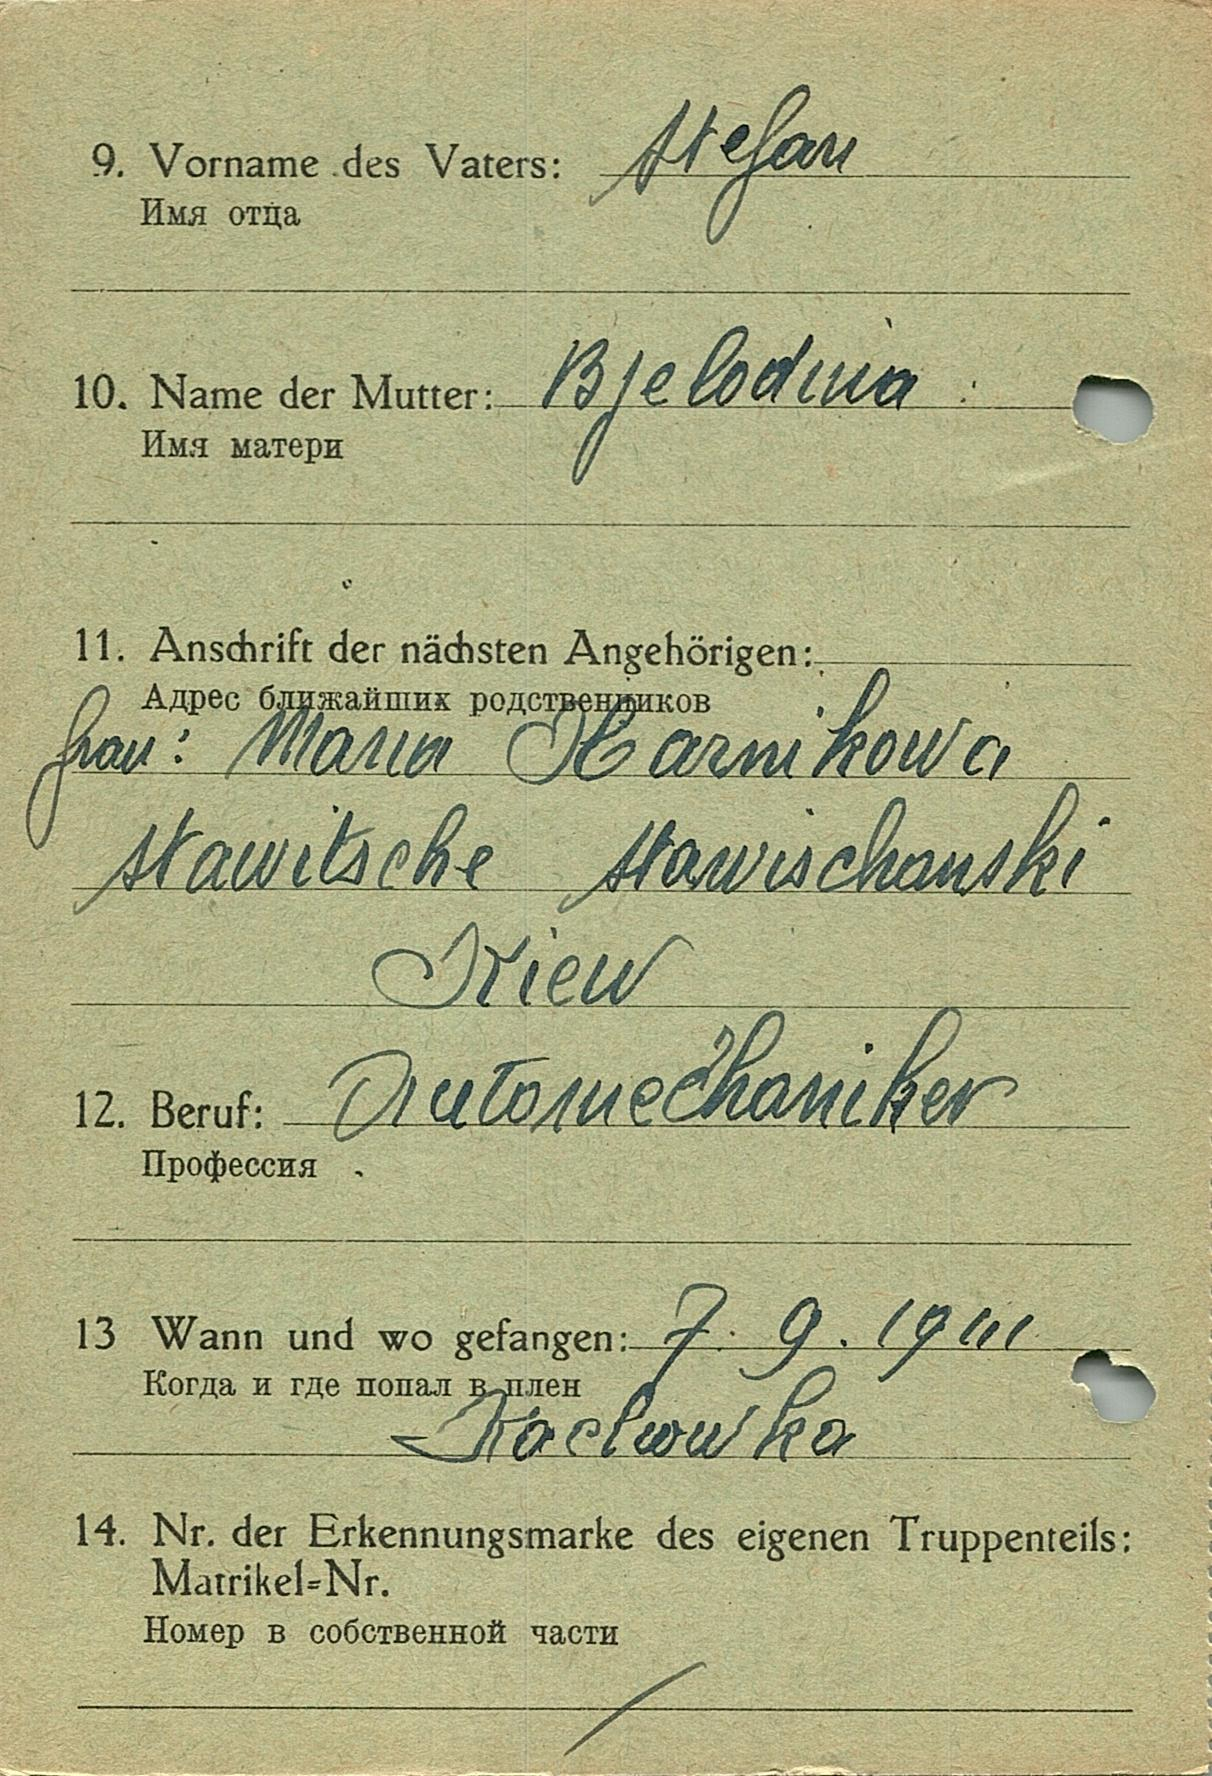 9. Vorname des Vaters: Stefan
Имя отца
10. Name der Mutter: Bjelodina
Имя матери
11. Anschrift der nächsten Angehörigen:
Адрес ближайших родственников
frau: Maria Harnikowa
Stawitsche Stawischanski
Kiew
12. Beruf: Automechaniker
Профессия
13 Wann und wo gefangen: 7. 9. 1941
Когда и где попал в плен
14. Nr. der Erkennungsmarke des eigenen Truppenteils:
Matrikel=Nr.
Номер в собственной части